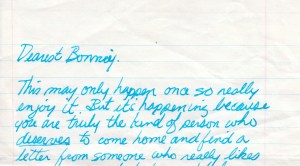 Dearest Bonnie,
This may only happen once so really
enjoy it. But it's happening because
you are truly the kind of person who
deserves to come home and find a
letter from someone who really likes